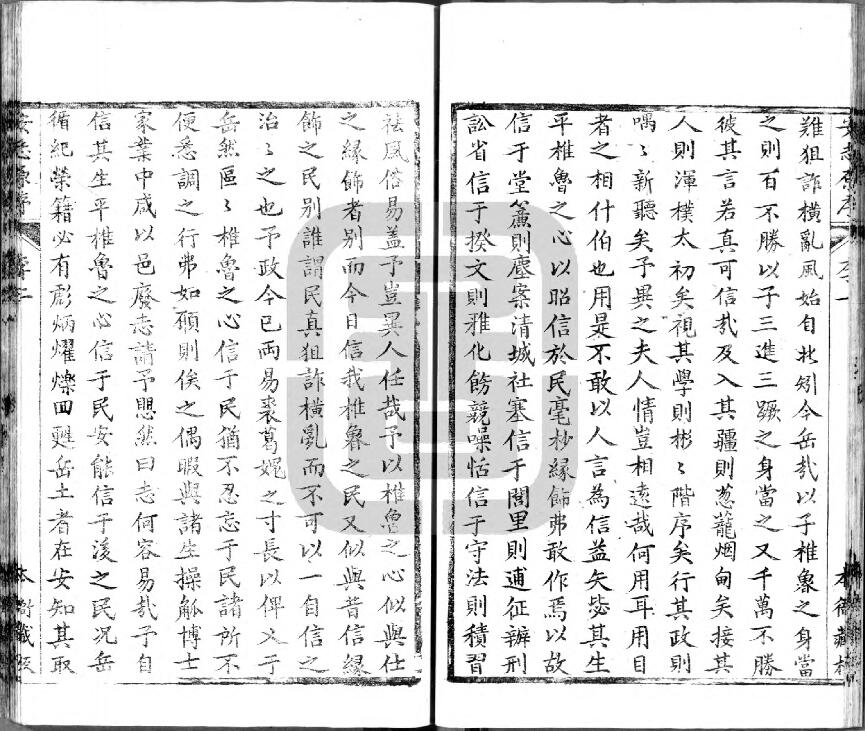 難狙詐橫亂風始自北矧今岳哉以子椎魯之身當
之則百不勝以子三進三蹶之身當之又千萬不勝
彼其言若真可信哉及入其疆則蔥蘢烟甸矣接其
人則渾樸太初矣視其學則彬〻階序矣行其政則
喁〻新聽矣予異之夫人情豈相遠哉何用耳用目
者之相什伯也用是不敢以人言為信益矢毖其生
平椎魯之心以昭信於民毫杪緣飾弗敢作焉以故
信于堂簾則塵案清城社塞信于閭里則逋征辦刑
訟省信于揆文則雅化飭競噪恬信于守法則積習
祛風俗易盖予豈異人任哉予以椎魯之心似與仕
之緣飾者別而今日信我椎魯之民又似與昔信緣
飾之民別誰謂民真狙詐橫亂而不可以一自信之
治〻之也予政今已兩易裘葛娓之寸長以俾乂于
岳然區〻椎魯之心信于民猶不忍忘于民諸所不
便悉調之行弗如願則俟之偶暇與諸生操觚博士
家業中咸以邑廢志請予愳然曰志何容易哉予自
信其生平椎魯之心信于民安能信于後之民況岳
循紀榮籍必有彪炳燿爍回甦岳土者在安知其取